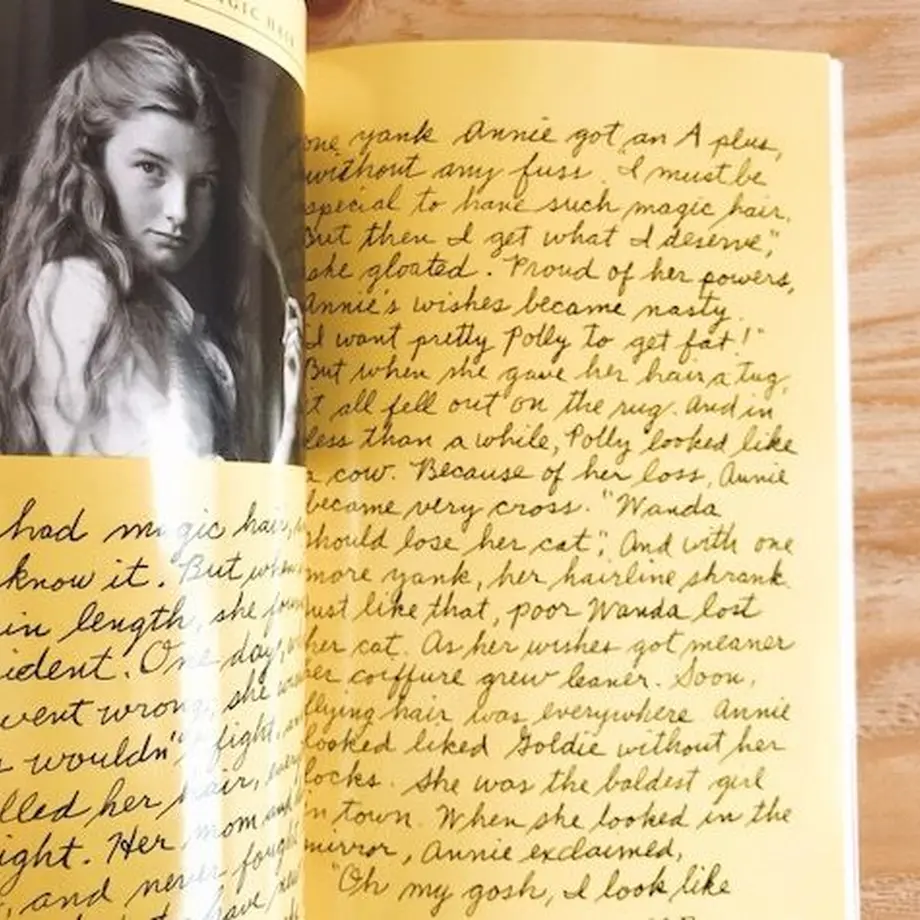 MAGIC HAIR
had magic hair,
know it. But when
in length, she
ident. One day,
went wrong, she
wouldn't fight,
lled her hair,
ight. Her mom and
, and never fought
have
one yank Annie got an A plus,
without any fuss. "I must be
special to have such magic hair.
But then I get what I deserve,"
she gloated. Proud of her powers,
Annie's wishes became nasty.
"I want pretty Polly to get fat!"
But when she gave her hair a tug,
it all fell out on the rug. And in
less than a while, Polly looked like
a cow. Because of her loss, Annie
became very cross. "Wanda
should lose her cat", And with one
more yank, her hairline shrank.
Just like that, poor Wanda lost
her cat. As her wishes got meaner
her coiffure grew leaner. Soon,
flying hair was everywhere. Annie
looked liked Goldie without her
locks. She was the baldest girl
in town. When she looked in the
mirror, Annie exclaimed,
"Oh my gosh, I look like